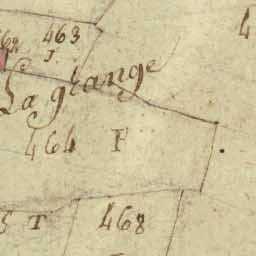 463
J.
4
La grange
464 F
S T
468